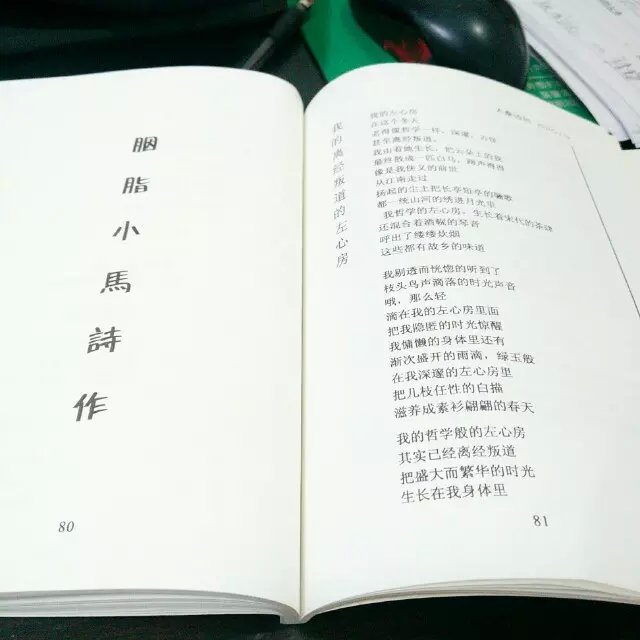 胭脂小馬詩作
80
我的离经叛道的左心房
我的左心房
在这个冬天
老得像哲学一样，深邃，
甚至离经叛道。
我由着她生长，把云朵上的我
最终散成一匹白马，蹄声得得
像是我侠义的前世
从江南走过
扬起的尘土把长亭短亭的骊歌
都一统山河的绣进月光里
我哲学的左心房，生长着宋代的茶
还混合着酒幌的琴音
呼出了缕缕炊烟
这些都有故乡的味道
我剔透而恍惚的听到了
枝头鸟声滴落的时光声音
哦，那么轻
滴在我的左心房里面
把我隐匿的时光惊醒
我慵懒的身体里还有
渐次盛开的雨滴，绿玉般
在我深邃的左心房里
把几枝任性的白描
滋养成素衫翩翩的春天
我的哲学般的左心房
其实已经离经叛道
把盛大而繁华的时光
生长在我身体里
81